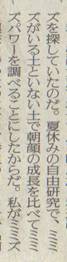 ズを探していたのだ。夏休みの自由研究で、ミミ
ズがいる土といない土で朝顔の成長を比べて、ミミ
ズパワーを調べることにしたからだ。私がミミズ